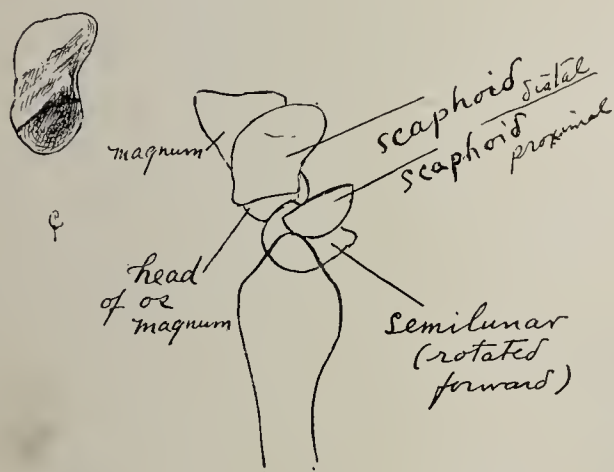 scaphoid distal
scaphoid proximal
magnum
head
of os
magnum
semilunar
(rotated
forward)